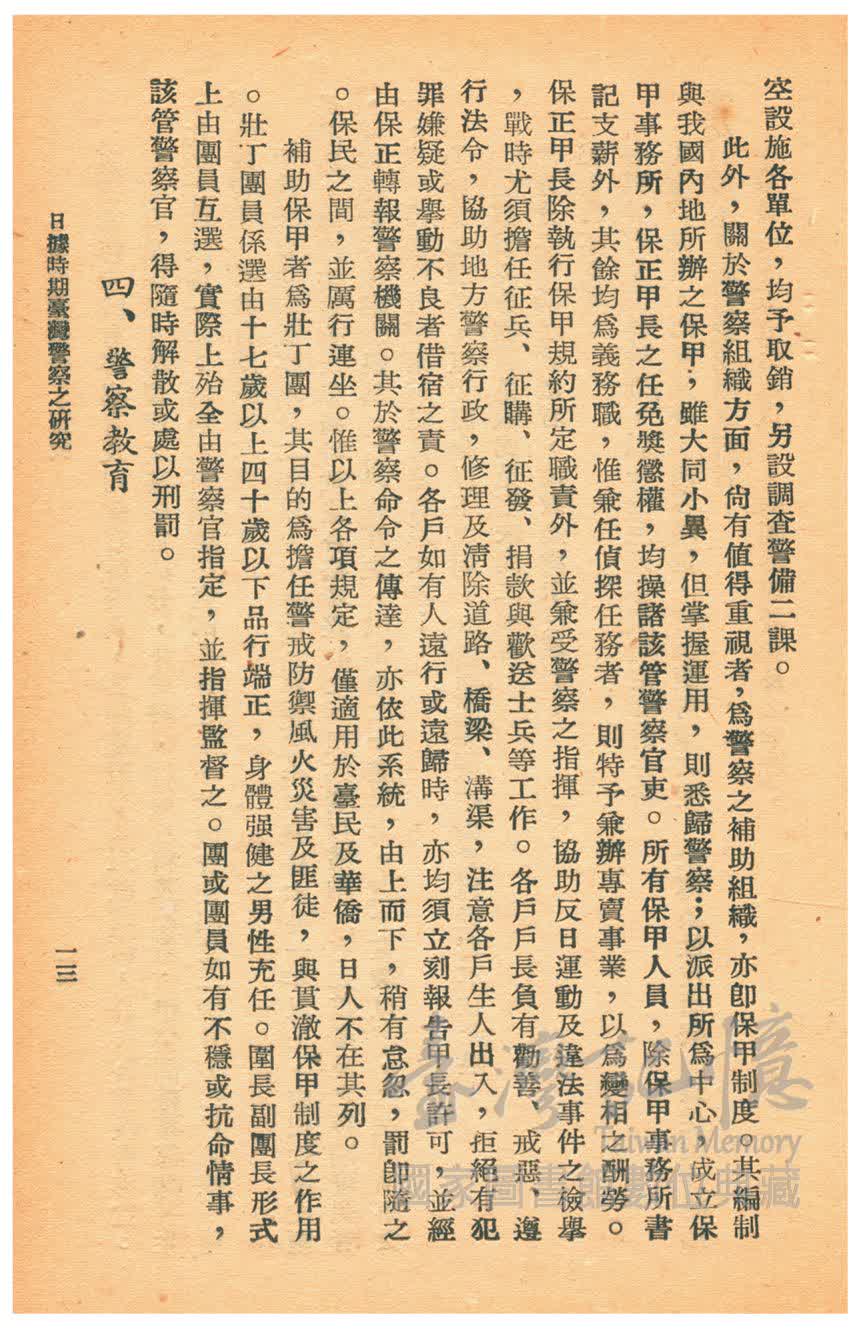 空設施各單位，均予取銷，另設調查警備二課。
此外，關於警察組織方面，尙有值得重視者，爲警察之補助組織，亦卽保甲制度。其編制
與我國內地所辦之保甲，雖大同小異，但掌握運用，則悉歸警察；以派出所爲中心，成立保
甲事務所，保正甲長之任免獎懲權，均操諸該管警察官吏。所有保甲人員，除保甲事務所書
記支薪外，其餘均爲義務職，惟兼任偵探任務者，則特予兼辦專賣事業，以爲變相之酬勞。
保正甲長除執行保甲規約所定職責外，並兼受警察之指揮，協助反日運動及違法事件之檢舉
，戰時尤須擔任征兵、征購、征發、捐款與歡送士兵等工作。各戶戶長負有勸善、戒惡、遵
行法令，協助地方警察行政，修理及淸除道路、橋梁、溝渠，注意各戶生人出入，拒絕有犯
罪嫌疑或舉動不良者借宿之責。各戶如有人遠行或遠歸時，亦均須立刻報告甲長許可，並經
由保正轉報警察機關。其於警察命令之傳達，亦依此系統，由上而下，稍有怠忽，罰卽隨之
。保民之間，並厲行連坐。惟以上各項規定，僅適用於臺民及華僑，日人不在其列。
補助保甲者爲壯丁團，其目的爲擔任警戒防禦風火災害及匪徒，與貫澈保甲制度之作用
。壯丁團員係選由十七歲以上四十歲以下品行端正，身體强健之男性充任。團長副團長形式
上由團員互選，實際上殆全由警察官指定，並指揮監督之。團或團員如有不穩或抗命情事，
該管警察官，得隨時解散或處以刑罰。
四、警察敎育
日據時期臺灣警察之研究
一三
臺灣記憶
Taiwan Memory
國家圖書館數位典藏